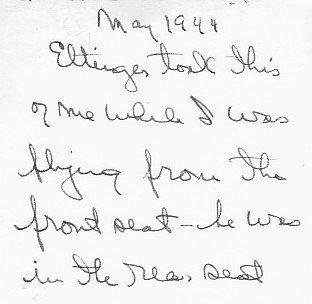 May 1944
Ettinger took this
of me while I was
flying from the
front seat - he was
in the rear seat